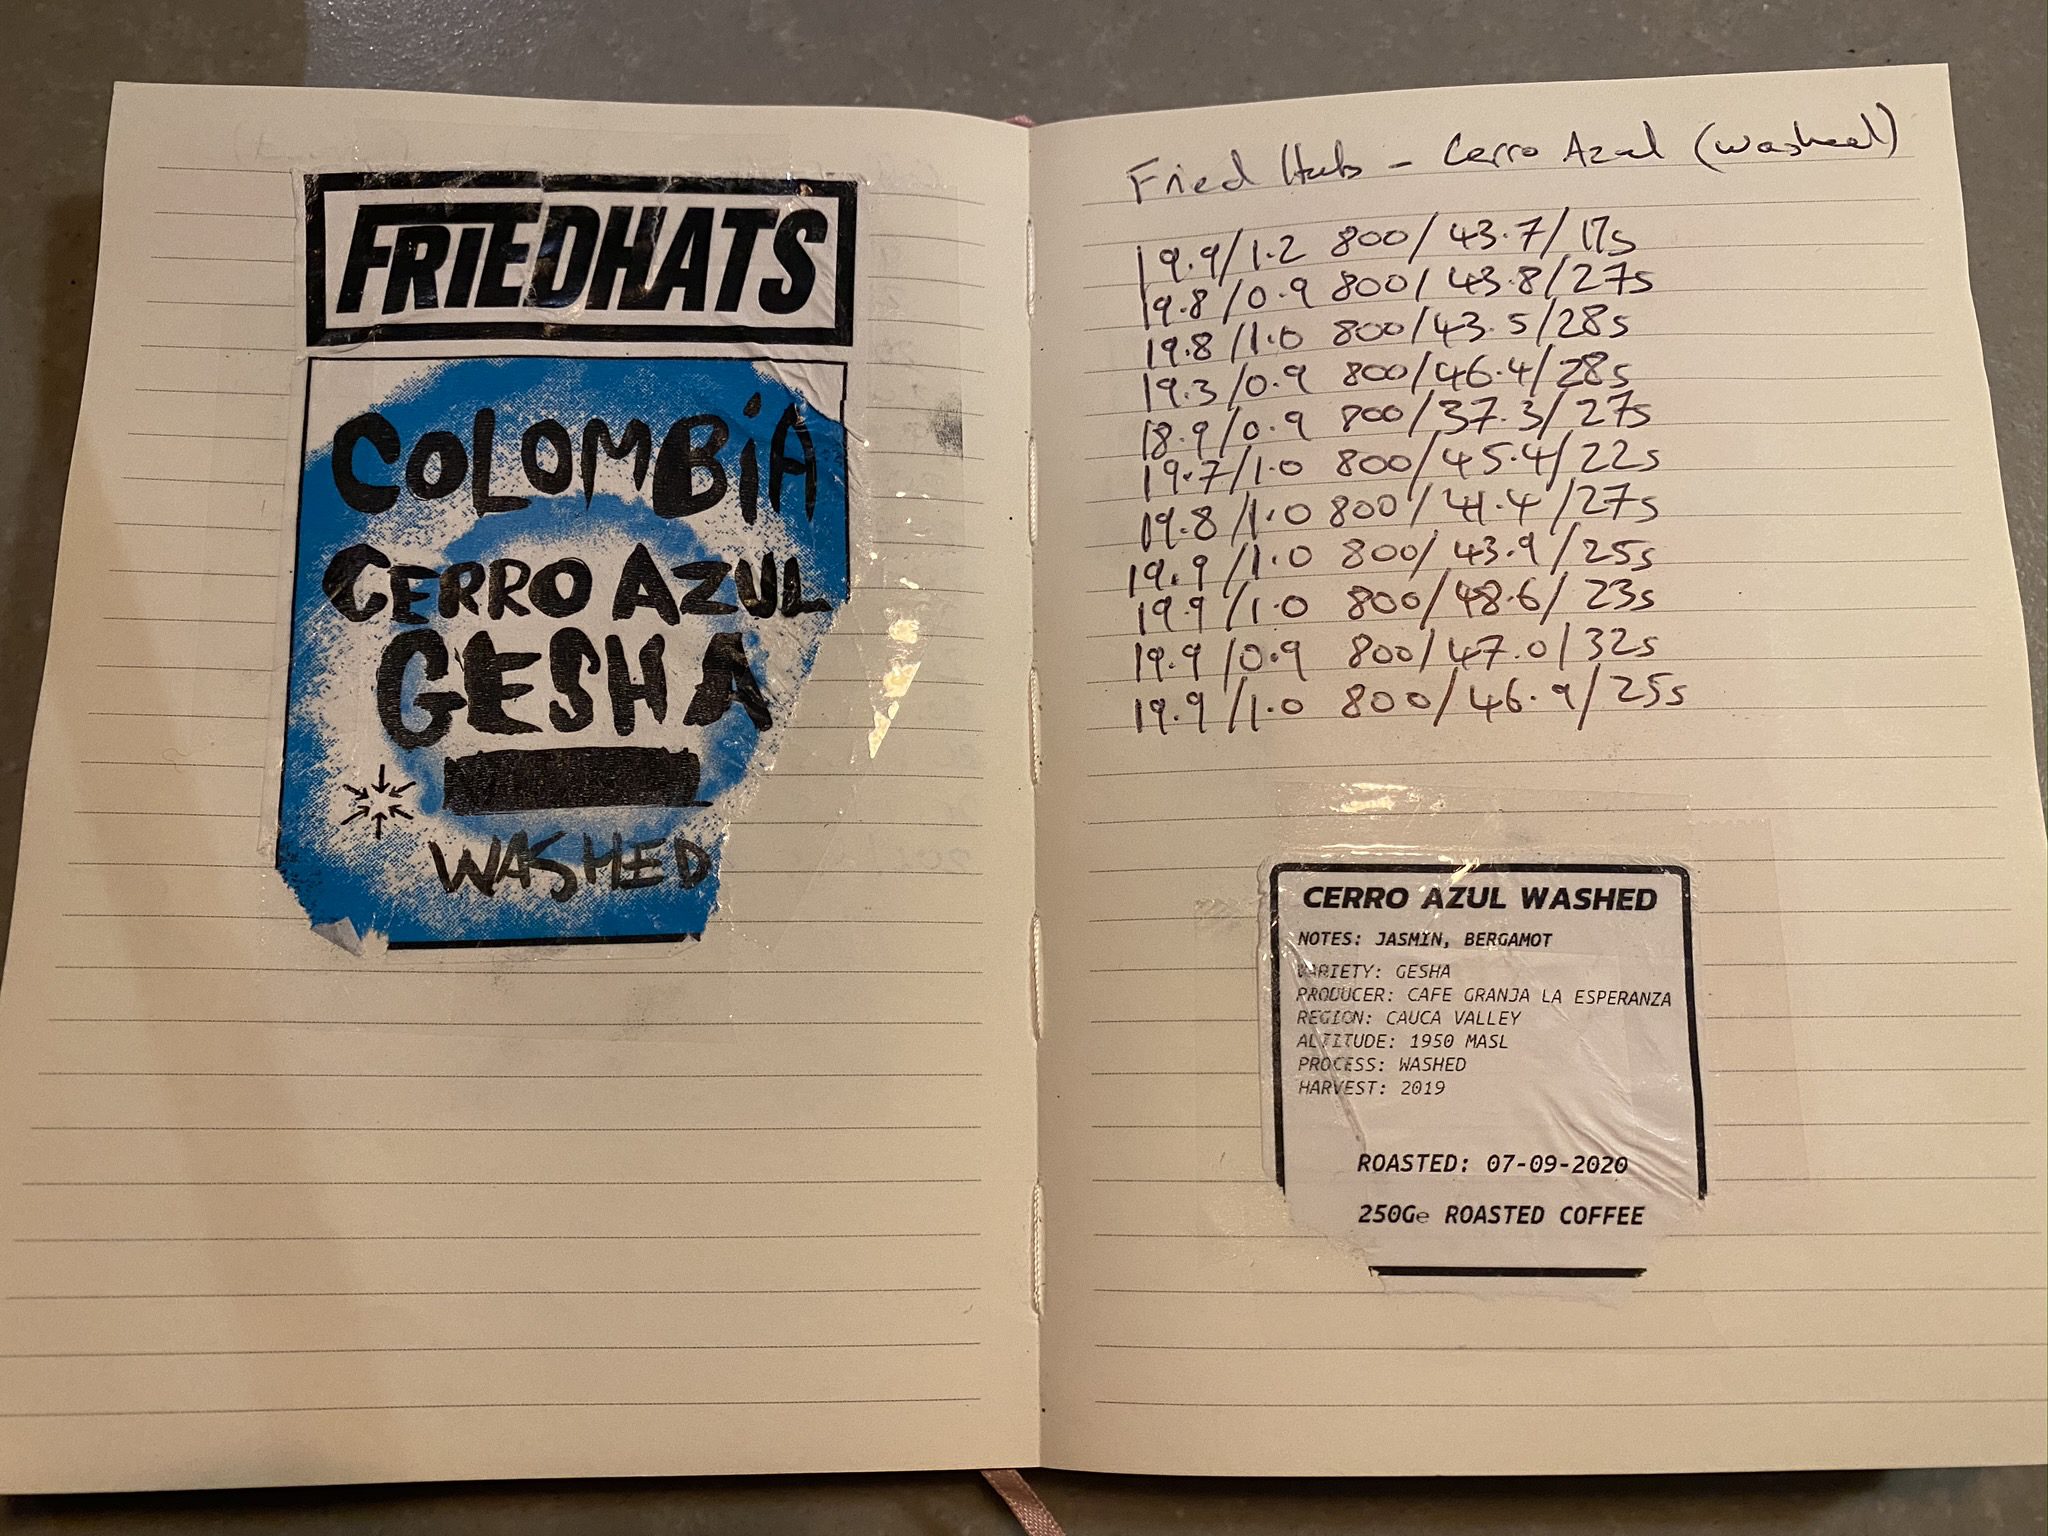 FRIEDHATS
COLOMBIA
CERRO AZUL
GESHA
WASHED
Fried Hats - Cerro Azul (washed)
19.9/1.2 800/43.7/17s
19.8/0.9 800/43.8/27s
19.8/1.0 800/43.5/28s
19.3/0.9 800/46.4/28s
18.9/0.9 800/37.3/27s
19.7/1.0 800/45.4/22s
19.8/1.0 800/41.4/27s
19.9/1.0 800/43.9/25s
19.9/1.0 800/48.6/23s
19.9/0.9 800/47.0/32s
19.9/1.0 800/46.9/25s
CERRO AZUL WASHED
NOTES: JASMIN, BERGAMOT
VARIETY: GESHA
PRODUCER: CAFE GRANJA LA ESPERANZA
REGION: CAUCA VALLEY
ALTITUDE: 1950 MASL
PROCESS: WASHED
HARVEST: 2019
ROASTED: 07-09-2020
250Ge ROASTED COFFEE